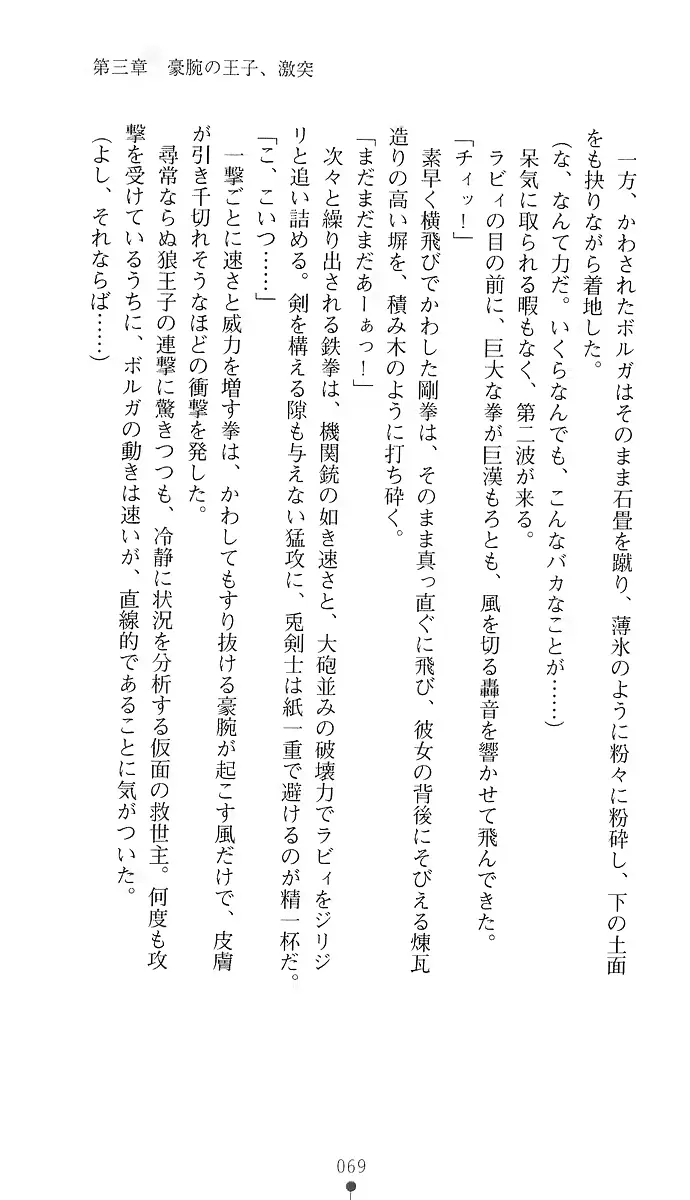 第三章　豪腕の王子、激突
　一方、かわされたボルガはそのまま石畳を蹴り、薄氷のように粉々に粉砕し、下の土面
をも抉りながら着地した。
（な、なんて力だ。いくらなんでも、こんなバカなことが……）
　呆気に取られる暇もなく、第二波が来る。
　ラビィの目の前に、巨大な拳が巨漢もろとも、風を切る轟音を響かせて飛んできた。
「チィッ！」
　素早く横飛びでかわした剛拳は、そのまま真っ直ぐに飛び、彼女の背後にそびえる煉瓦
造りの高い塀を、積み木のように打ち砕く。
「まだまだまだあーぁっ！」
　次々と繰り出される鉄拳は、機関銃の如き速さと、大砲並みの破壊力でラビィをジリジ
リと追い詰める。剣を構える隙も与えない猛攻に、兎剣士は紙一重で避けるのが精一杯だ。
「こ、こいつ……」
　一撃ごとに速さと威力を増す拳は、かわしてもすり抜ける豪腕が起こす風だけで、皮膚
が引き千切れそうなほどの衝撃を発した。
　尋常ならぬ狼王子の連撃に驚きつつも、冷静に状況を分析する仮面の救世主。何度も攻
撃を受けているうちに、ボルガの動きは速いが、直線的であることに気がついた。
（よし、それならば……）
069